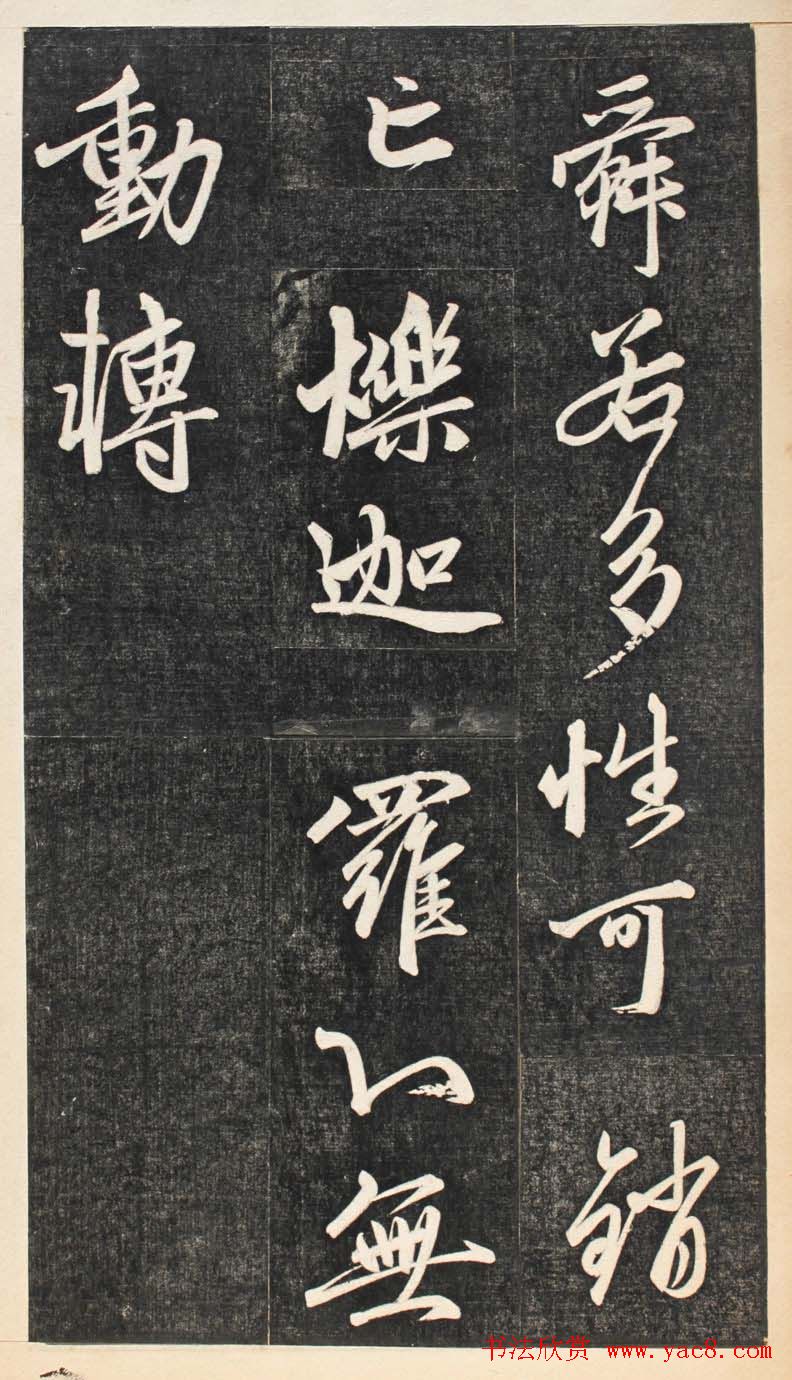 舜若多性可銷
亡櫟迦羅心無
動轉
书法欣赏 www.yac8.com